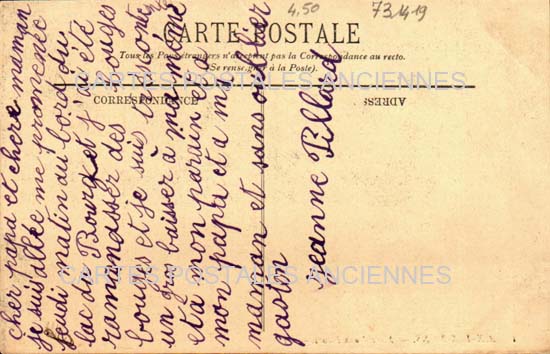 4,50
731419
CARTE POSTALE
Tous les Pays étrangers n'acceptent pas la Correspondance au recto.
(Se renseigner à la Poste).
CARTES POSTALES ANCIENNES
CORRESPONDANCE
ADRESSE
cher papa et chere maman
je suis allée me promener
jeudi matin au bord du
lac du Bourget j'ai été
rammasser des rouges
bouges et je suis tombé
un gros baisser à ma mémé
et a mon parain et
mon papa et a ma
maman et sans oublier
gaston
Jeanne Pillard
CARTES POSTALES ANCIENNES